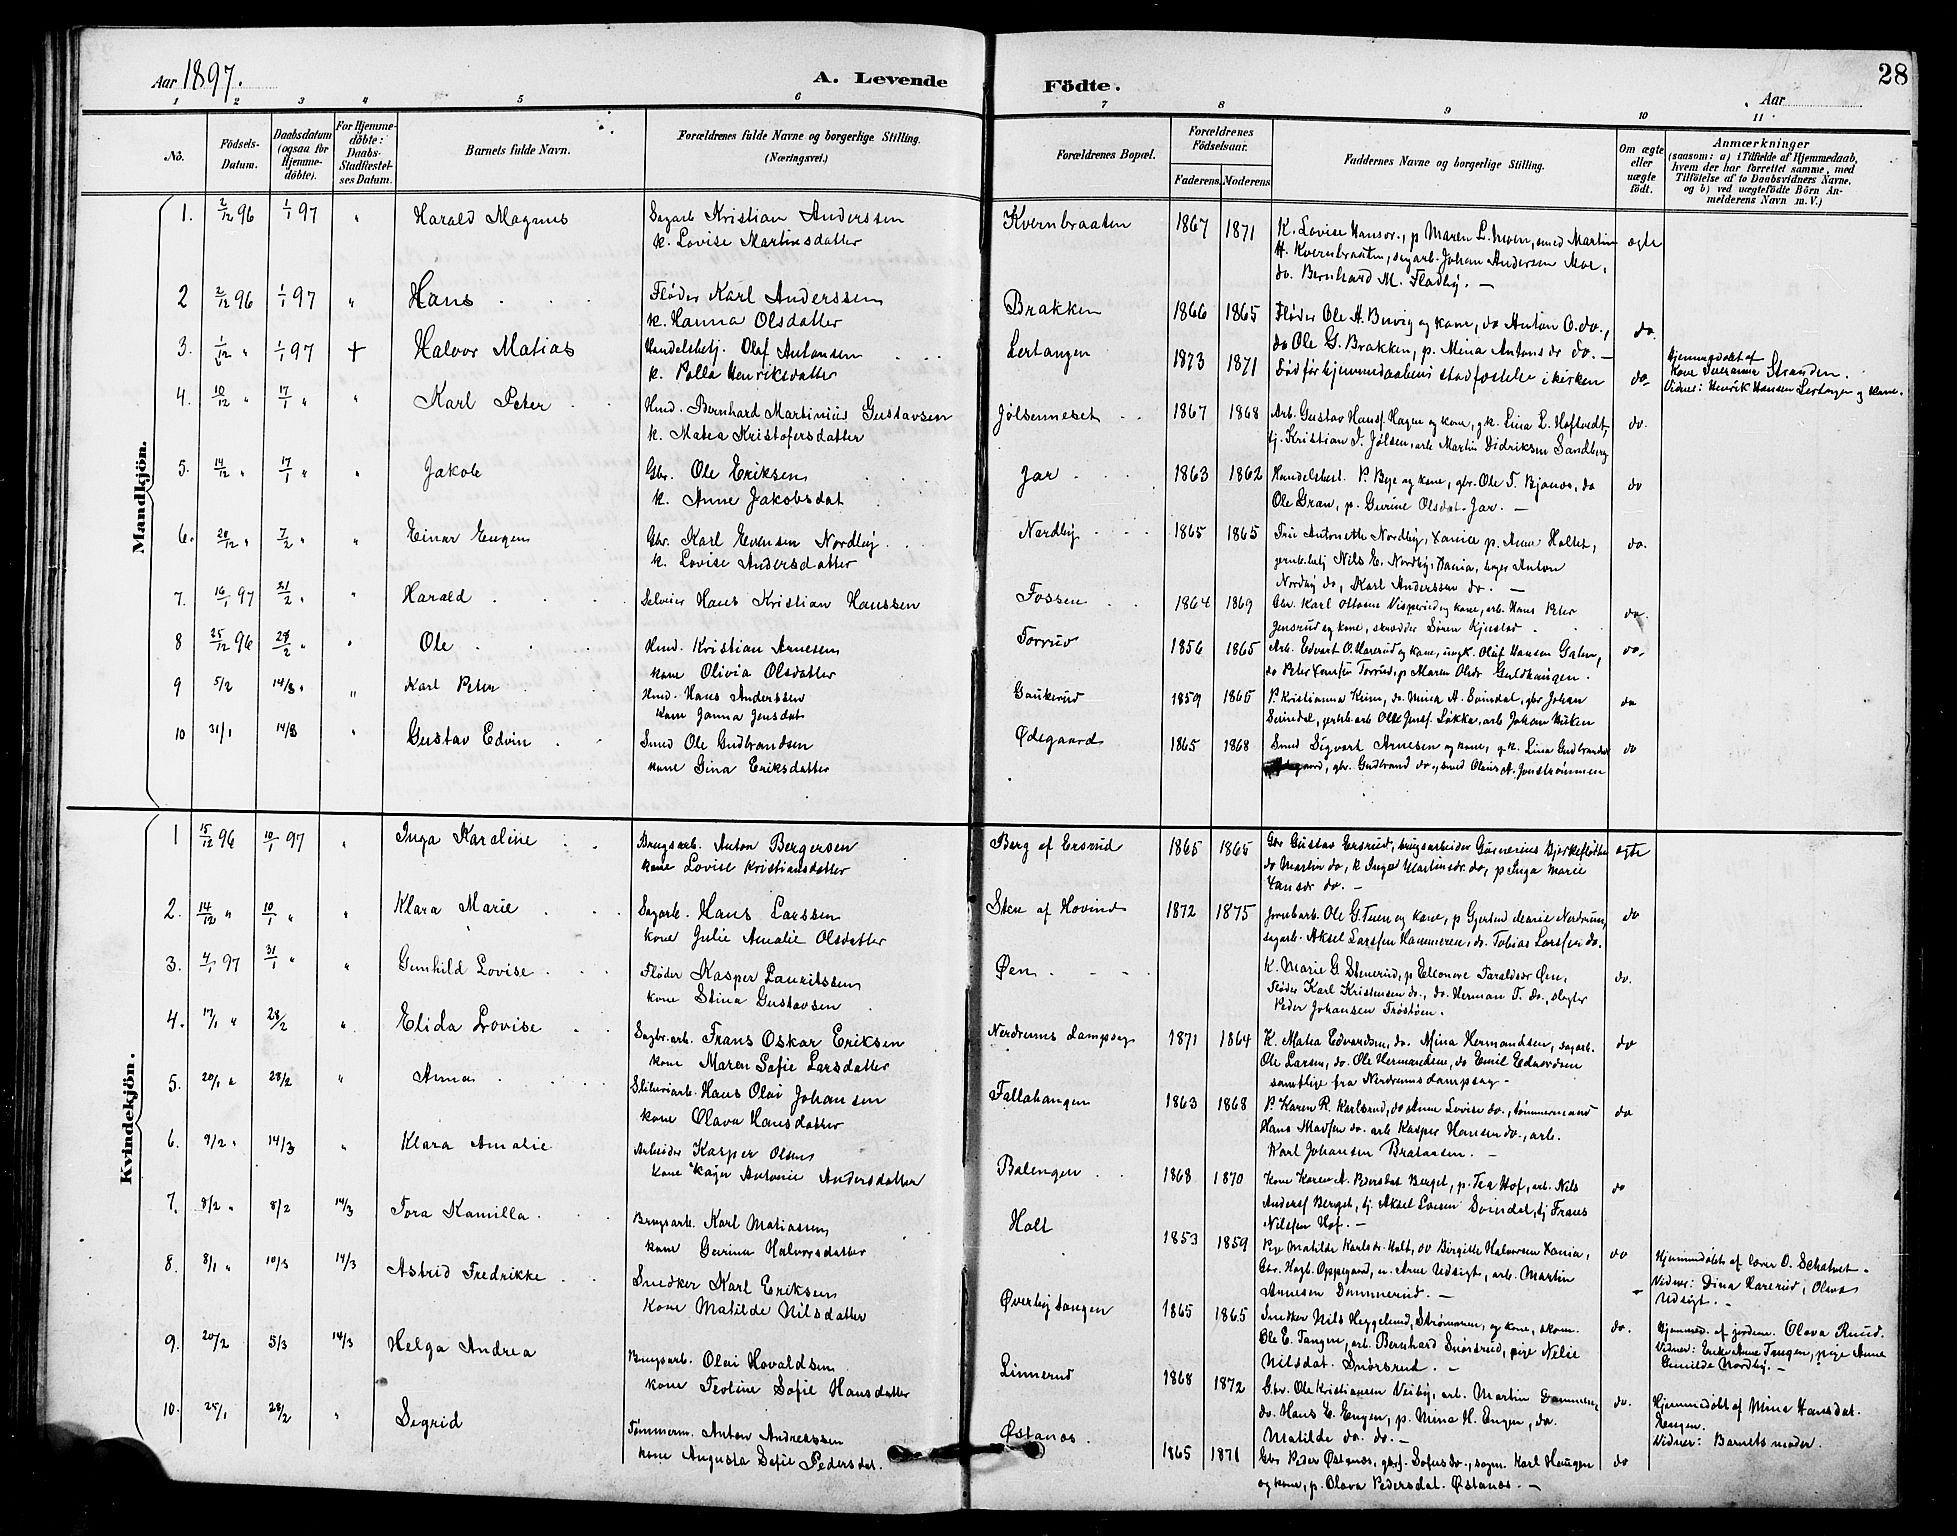 Aar 1897.
A. Levende
Födte.
Aar
28
1 2 3 4 5 6 7 8 9 10 11
No.
Födsels-Datum.
Daabsdatum (ogsaa for Hjemmedöbte).
For Hjemmedöbte: Daabs-Stadfæstelses Datum.
Barnets fulde Navn.
Forældrenes fulde Navne og borgerlige Stilling. (Næringsvei.)
Forældrenes Bopæl.
Forældrenes Födselsaar.
Faderens. Moderens.
Faddernes Navne og borgerlige Stilling.
Om ægte eller uægte födt.
Anmærkninger
(saasom: a) i Tilfælde af Hjemmedaab, hvem der har forrettet samme, med Tilföielse af to Daabsvidners Navne, og b) ved uægtefödte Börn Anmelderens Navn m. V.)
Mandkjön.
1. 2/12 96 1/1 97 " Harald Magnus
Sagarb Kristian Anderssen
k. Lovise Martinsdatter
Kvernbraaten 1867 1871
K. Lovise Hansdr., p Maren L. Moen, smed Martin
H. Kvernbraaten, sagarb. Johan Andersen Moe,
do. Bernhard M. Fladby. —
ægte
2 2/12 96 1/1 97 " Hans
Fløder Karl Anderssen
k. Hanna Olsdatter
Brakken 1866 1865
Fløder Ole A. Burig og kone, do Anton O. do.,
do Ole G. Brakken, p. Mina Antonsdr do. —
do.
3. 1/12 " 1/1 97 + Halvor Matias
Handelsbetj. Olaf Antonsen
k. Palla Henriksdatter
Lertangen 1873 1871
Fød før hjemmedaabens stadfæstelse i kirken
do.
Hjemmedøbt af
Kone Susanna Stranden.
Vidner: Henrik Hansen Lertangen og kone.
4. 10/12 " 17/1 " " Karl Peter
Hmd. Bernhard Martinius Gustavsen
k. Matea Kristofersdatter
Jølsenneset 1867 1868
Arb. Gustav Hansf. Hagen og kone, gk. Lina L. Hoftvedt,
tj. Kristian J. Jølsen, arb Martin Didriksen Sandberg
do.
5. 14/12 " 17/1 " " Jakob
Gbr. Ole Eriksen
k. Anne Jakobsdat
Jar 1863 1862
Handelsbest. P. Bye og kone, gbr. Ole T. Bjanes, do
Ole Gran, p. Gurine Olsdat. Jar. —
do
6. 20/12 " 7/2 " " Einar Eugen
Gbr. Karl Evensen Nordby
k. Lovise Andersdatter
Nordby 1865 1865
Fru Antonette Nordby, Xania p. Anne Holtet,
jernb.betj Nils E. Nordby, Xania, bager Anton
Nordby do, Karl Anderssen do. —
do.
7. 16/1 97 21/2 " " Harald
Selveier Hans Kristian Hanssen
Fossen 1864 1869
Gbr. Karl Ottosen Visperud og kone, arb. Hans Peter
Jensrud og kone, skrædder Søren Kjustad.
do
8 25/12 96 28/2 " " Ole
Hmd. Kristian Arnesen
kone Olivia Olsdatter
Torrud 1856 1865
Arb. Edvart O. Harerud og kone, ungk. Oluf Hansen Galen,
do Peter Hansen Torrud, p Maren Olsdr Guldhaugen.
do.
9 5/2 14/3 " " Karl Peter
Hmd. Hans Anderssen
kone Janna Jensdat
Gaukerud 1859 1865
P. Kristianna Kiim, do. Mina A. Svindal, gbr Johan
Svindal, jernb.arb Olle Jensf. Løkka, arb Johan Viken
do
10 31/1 14/3 " Gustav Edvin
Smed Ole Gudbrandsen
kone Gina Eriksdatter
Ødegaard 1865 1868
Smed Sigvart Arnesen og kone, gk. Lina Gudbrandsd
Ødegaard, gbr. Gudbrand do., smed Olaus A. Jonstrømmen
do
Kvindekjön.
1 15/12 96 10/1 97 " Inga Karoline
Brugsarb. Anton Bergersen
kone Lovise Kristiansdatter
Berg af Ersrud 1865 1865
Gbr Gustav Ersrud, brugsarbeider Gunerius Bjerkefløtten
do Martin do, k Inger Martinsdr. do, p Inga Marie
Hansdr do. —
ægte
2. 14/12 " 10/1 " " Klara Marie
Sagarb. Hans Larssen
kone Julie Amalie Olsdatter
Sten af Hovind 1872 1875
Jernbarb. Ole G. Tuen og kone, p Gjertrud Marie Nerdrum,
sagarb. Aksel Larsfen Hammeren, do. Tobias Larsfen do.
do
3. 4/1 97 31/1 " " Gunhild Lovise
Fløder Kasper Lauritssen
kone Stina Gustavsen
Øen
K. Marie G Stenerud, p Elleonore Taraldsdr Øen,
Fløder Karl Kristensen do., do. Herman T. do., slagter
Peder Johansen Trøstøen.
do.
4. 17/1 " 28/2 " Elida Lovise
Sagbr.arb. Frans Oskar Eriksen
kone Maren Sofie Larsdatter
Nerdrums Dampsag 1871 1864
K. Matea Edvardsen, do. Mina Hermandsen, sagarb.
Ole Larsen, do. Ole Hermandsen, do Emil Edvardsen
samtlige fra Nerdrumsdampsag —
do
5. 20/1 " 28/2 " Anna
Sliberiarb. Hans Olai Johansen
kone Olava Hansdatter
Fallahaugen 1863 1868
P. Karen R. Karlsrud, do Anne Lovise do., tømmermand
Hans Madsen do. arb Kasper Hansen do., arb.
Karl Johansen Brataasen. —
do
6. 9/2 " 14/3 " Klara Amalie
Arbeider Kasper Olsen
kone Kaja Antonie Andersdatter
Balengen 1868 1870
Kone Karen A. Pedersdat Berget, p. Tea Hof, arb. Nils
Andersf Berget, tj. Aksel Larsen Svindal, tj Frans
Nilsfen Hof. —
do
7. 8/2 " 8/2 14/3 Tora Kamilla
Brugsarb. Karl Matiassen
kone Gurina Halvorsdatter
Holt 1853 1859
Pige Matilde Karlsdr. Holt, do Birgitte Halvorsen Xania,
Gbr. Hagb. Oppegaard, u. Arne Udsigt, arb. Martin
Arnesen Dammerud. —
do
Hjemmedøbt af lærer O. Schatvet.
Vidner: Dina Harerud, Olava
Udsigt. —
8. 8/1 " 10/3 14/3 Astrid Fredrikke
Snedker Karl Eriksen
Kone Matilde Nilsdatter
Øverby tangen 1865 1865
Snedker Nils Heggelund, Strømmen, og kone, skom.
Ole E. Tangen, arb. Bernhard Snorsrud, pige Nelie
Nilsdat. Snorsrud. —
do.
Hjemmed. af jordem. Olava Ruud.
Vidner: Enke Anne Tangen, pige Anne
Gunilde Nordby. —
9. 20/2 5/3 14/3 Helga Andrea
Brugsarb. Olai Hovaldsen
kone Teoline Sofie Hansdatter
Linnerud 1868 1872
Gbr. Ole Kristiansen Veiby, arb. Martin Dammen,
do. Hans E. Engen, p. Mina H. Engen, do.
Matilde do. do. —
do.
Hjemmedøbt af Mina Hansdat.
Engen.
Vidner: Barnets moder.
10. 25/1 28/2 " Sigrid
Tømmerm. Anton Andreassen
kone Augusta Sofie Pedersdat.
Østanes. 1865 1871
Gbr Peder Østanes, gbrf. Sofus do., sagm. Karl Haugen
og kone, p. Olava Pedersdat. Østanes. —
do